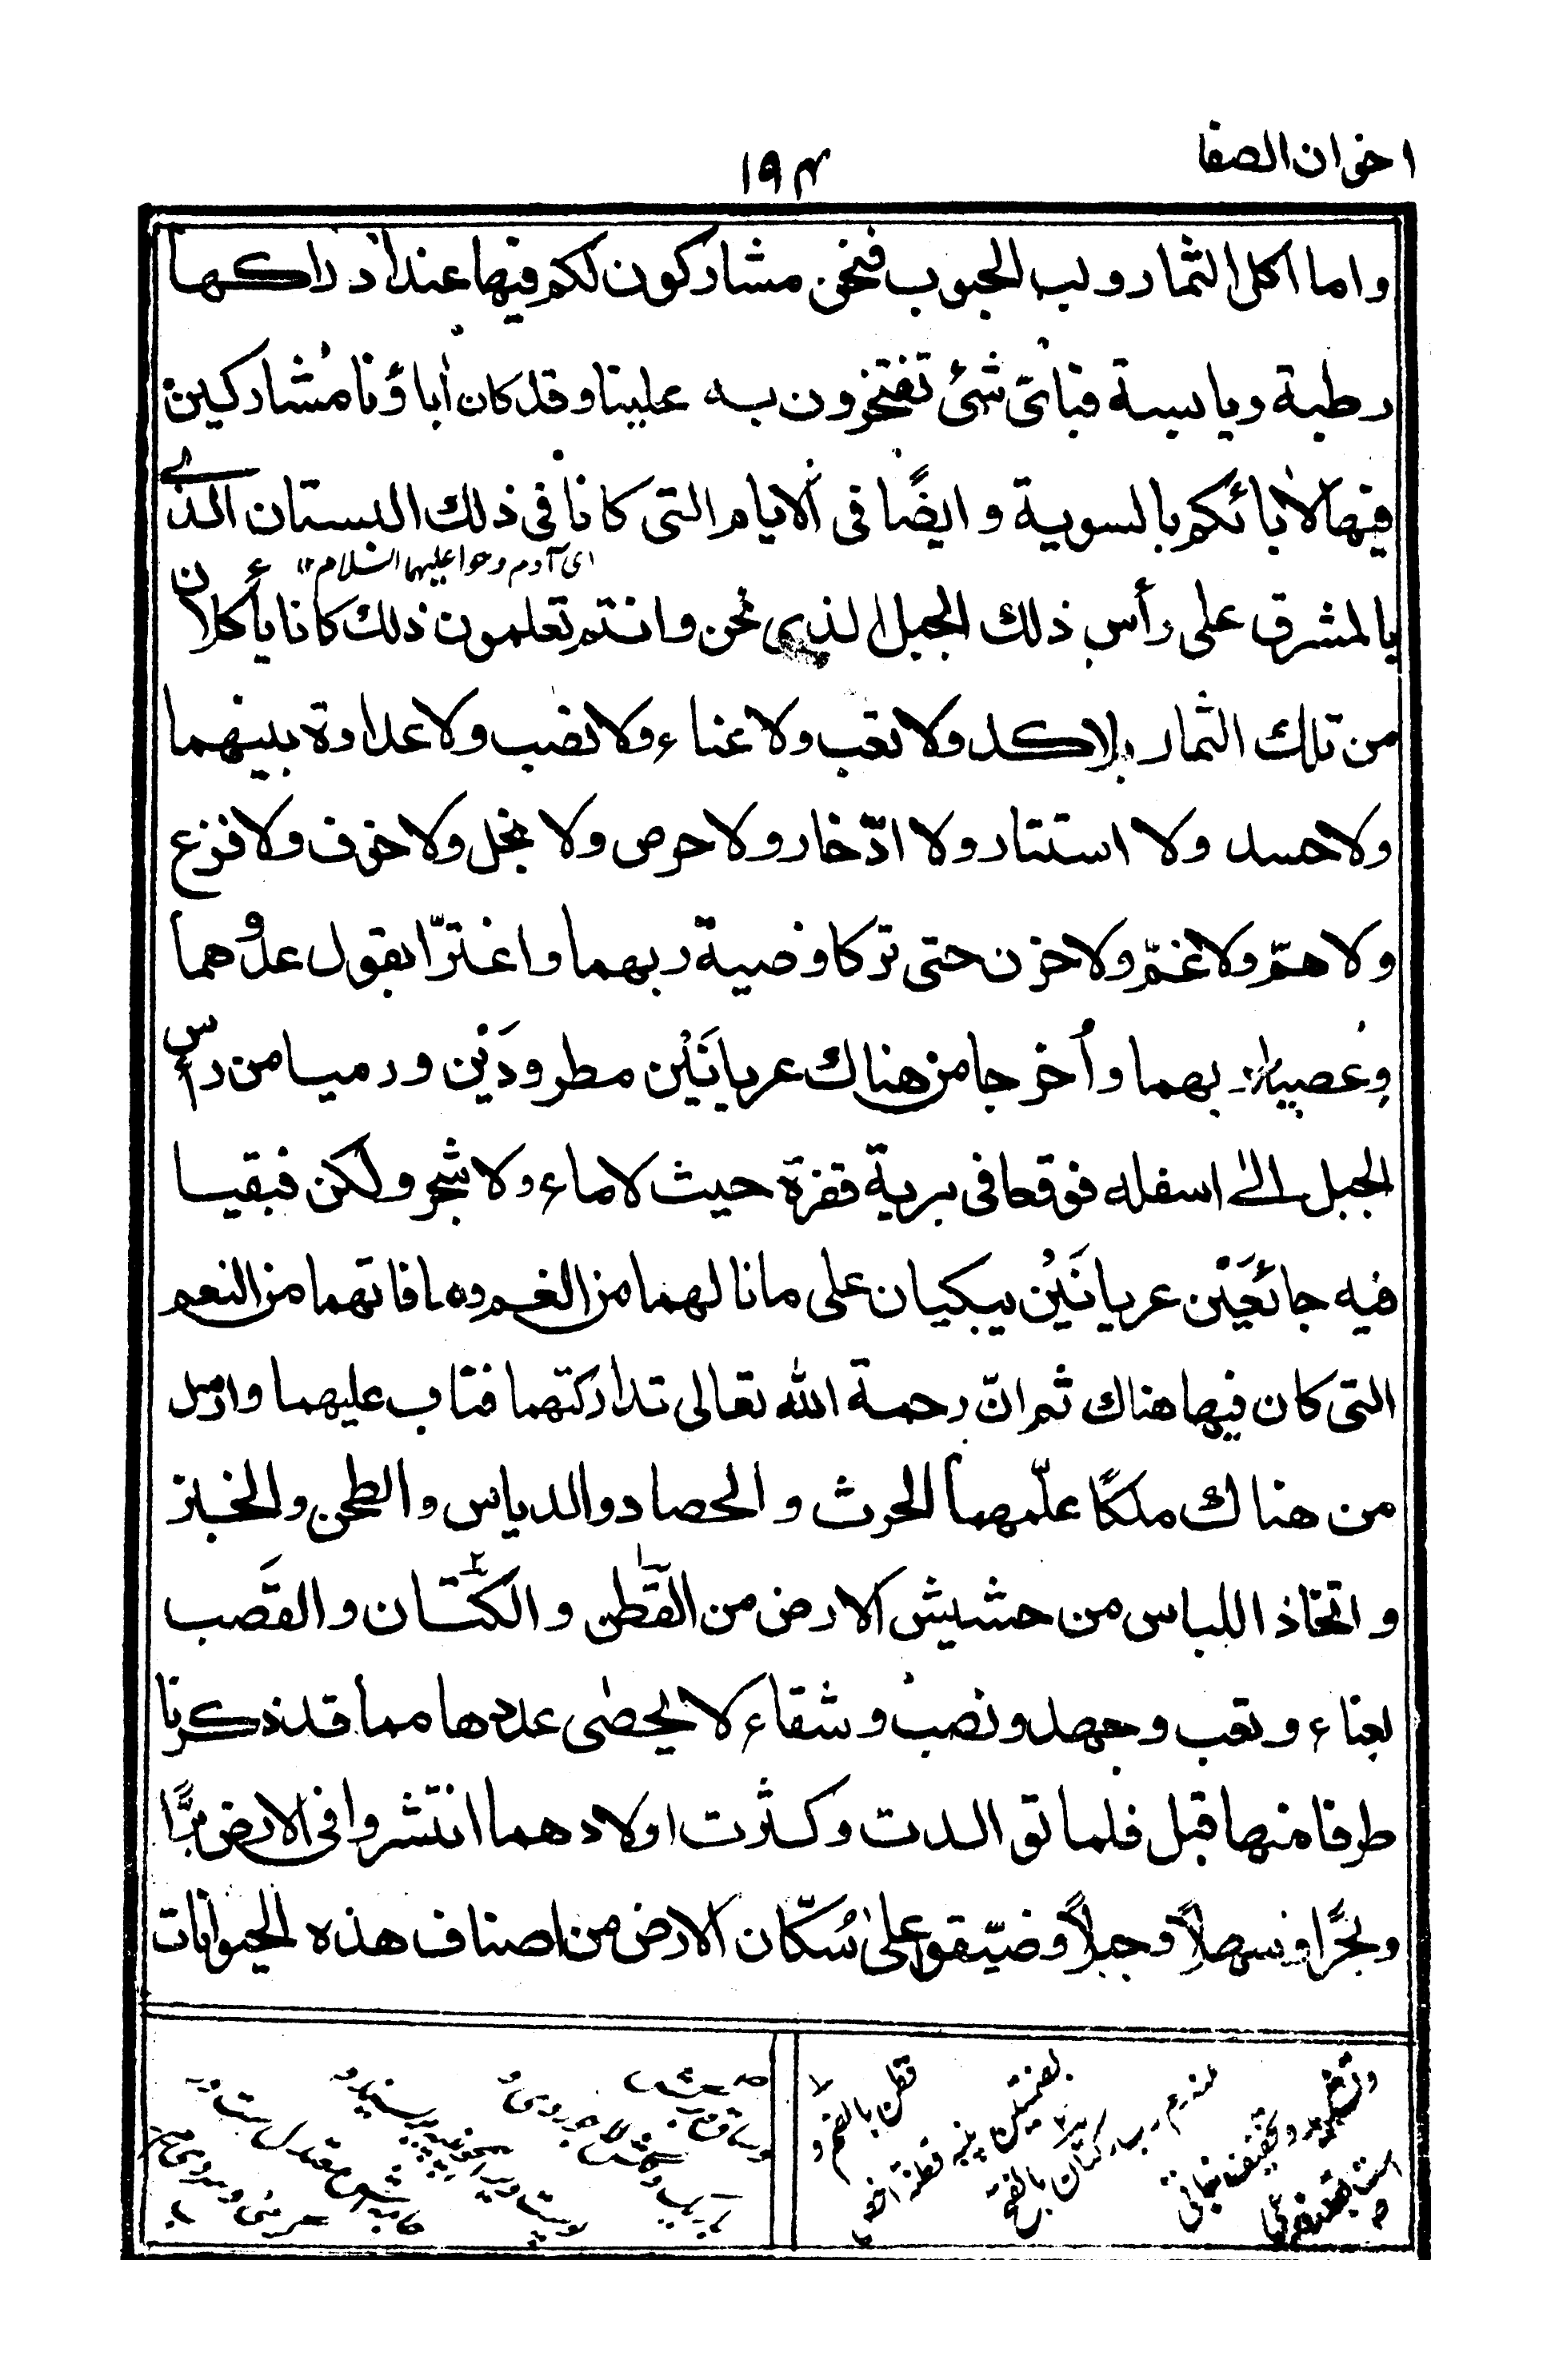 اخوان الصفا
١٩٤
واما اكل الثمار ولب الحبوب فنحن مشاركون لكم فيها عند ادراكها
رطبة ويابسة فبائ شئ تفتخرون به علينا وقد كان اٰباؤنا مُشاركين
فيها لاٰبائكم بالسوية وايضًا فى الايام التى كانا فى ذلك البستان الذے
اى آدم وحوا عليهما السلام ١٢
بالمشرق على رأس ذلك الجبل الذى نحن وانتم تعلمون ذلك كانا يأكلان
من تلك الثمار بلا كد ولا تعب ولا عناء ولا نصب ولا عداوة بينهما
ولا حسد ولا استتار ولا ادّخار ولا حرص ولا بخل ولا خوف ولا فزع
ولا همّ ولا غمّ ولا حزن حتى تركا وصية ربهما واغترّا بقول عدوهما
وعصيا ربهما واُخرجا من هناك عريانَيْن مطرودَيْن ورميا من رأس
الجبل الىٰ اسفله فوقعا فى برية قفرة حيث لا ماء ولا شجر ولا كن فبقيا
فيه جائعَيْن عريانَيْن يبكيان على ما نالهما من الغم وما فاتهما من النعم
التى كان فيها هناك ثم انّ رحمة الله تعالى تداركتهما فتاب عليهما وارسل
من هناك ملكًا علّمهما الحرث والحصاد والدياس والطحن والخبز
واتخاذ اللباس من حشيش الارض من القطن والكتّان والقَصب
بعناء وتعب وجهد ونصب وشقاء لا يحصٰى عددها مما قد ذكرنا
طرفا منها قبل فلما توالدت وكثرت اولادهما انتشروا فى الارض برًّا
وبحرًا وسهلاً وجبلاً وضيّقوا علىٰ سُكّان الارض من اصناف هذه الحيوانات
قطن بالضم و
بضمتين پنبه قطنة اخص
كتان بالفتح